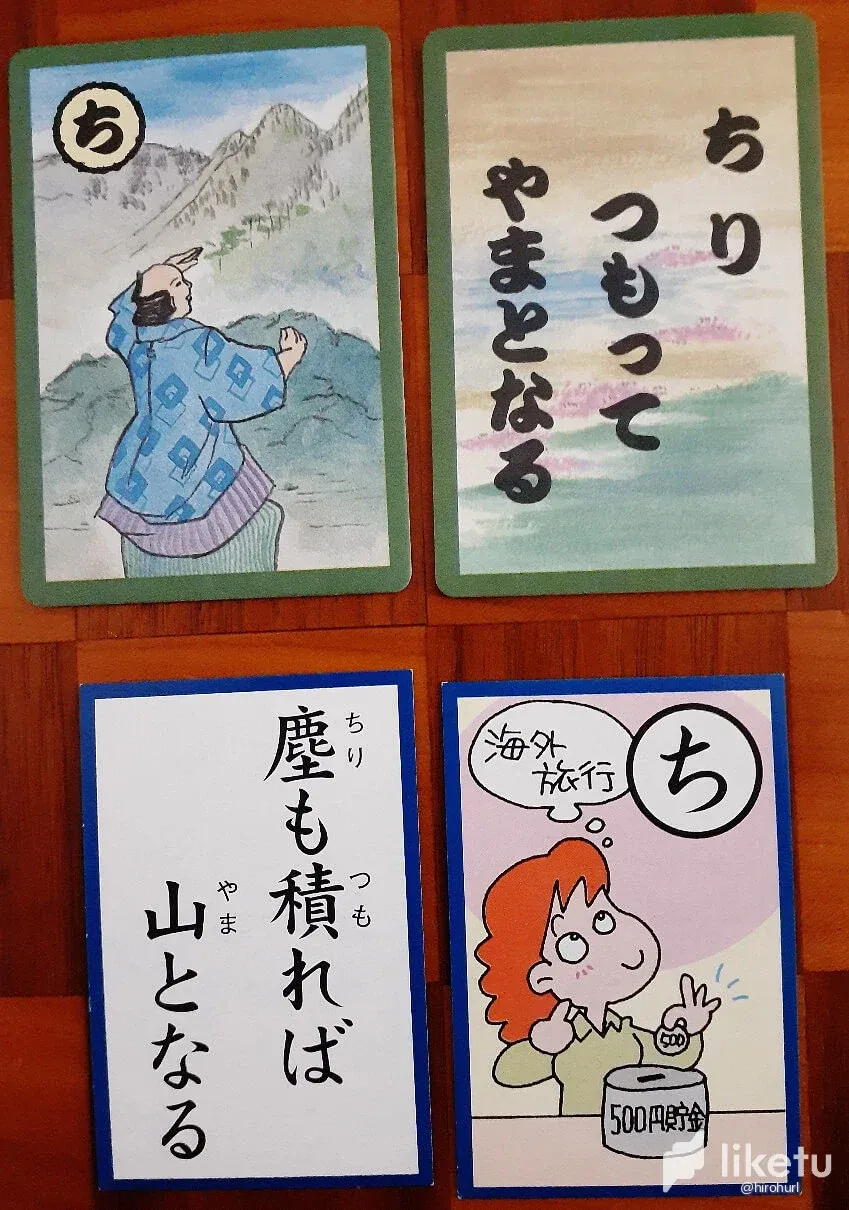 ち
ちり
つもって
やまとなる
塵も積れば
ちり
つも
山となる
やま
海外
旅行
ち
500
500円貯金
liketu
@hirohurl